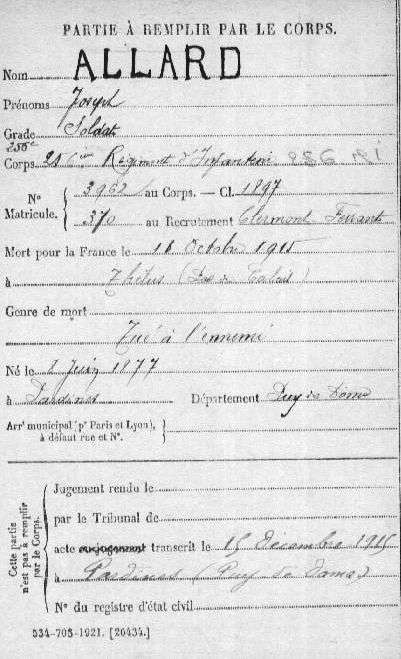 PARTIE À REMPLIR PAR LE CORPS.
Nom ALLARD
Prénoms Joseph
Grade Soldat
256e
Corps 256e Régiment d'Infanterie 256 RI
N° Matricule. { 3962 au Corps. — Cl. 1897
370 au Recrutement Clermont Ferrand
Mort pour la France le 16 Octobre 1915
à (Pas de Calais)
Genre de mort
Tué à l'ennemi
Né le 2 Juin 1877
à Pardines Département Puy de Dôme
Arrt municipal (pr Paris et Lyon),
à défaut rue et N°.
Cette partie n'est pas à remplir par le Corps.
Jugement rendu le
par le Tribunal de
acte ou jugement transcrit le 15 Décembre 1915
à Pardines (Puy de Dome)
N° du registre d'état civil
534-708-1921. [20434.]